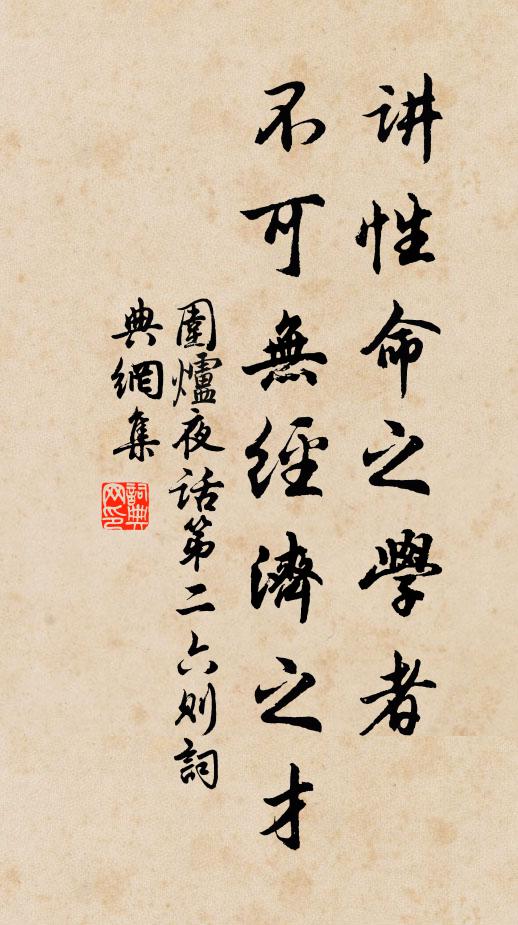 讲性命之學者
不可無經濟之才
圍爐夜话第二六则詞
典網集
詞典
网印